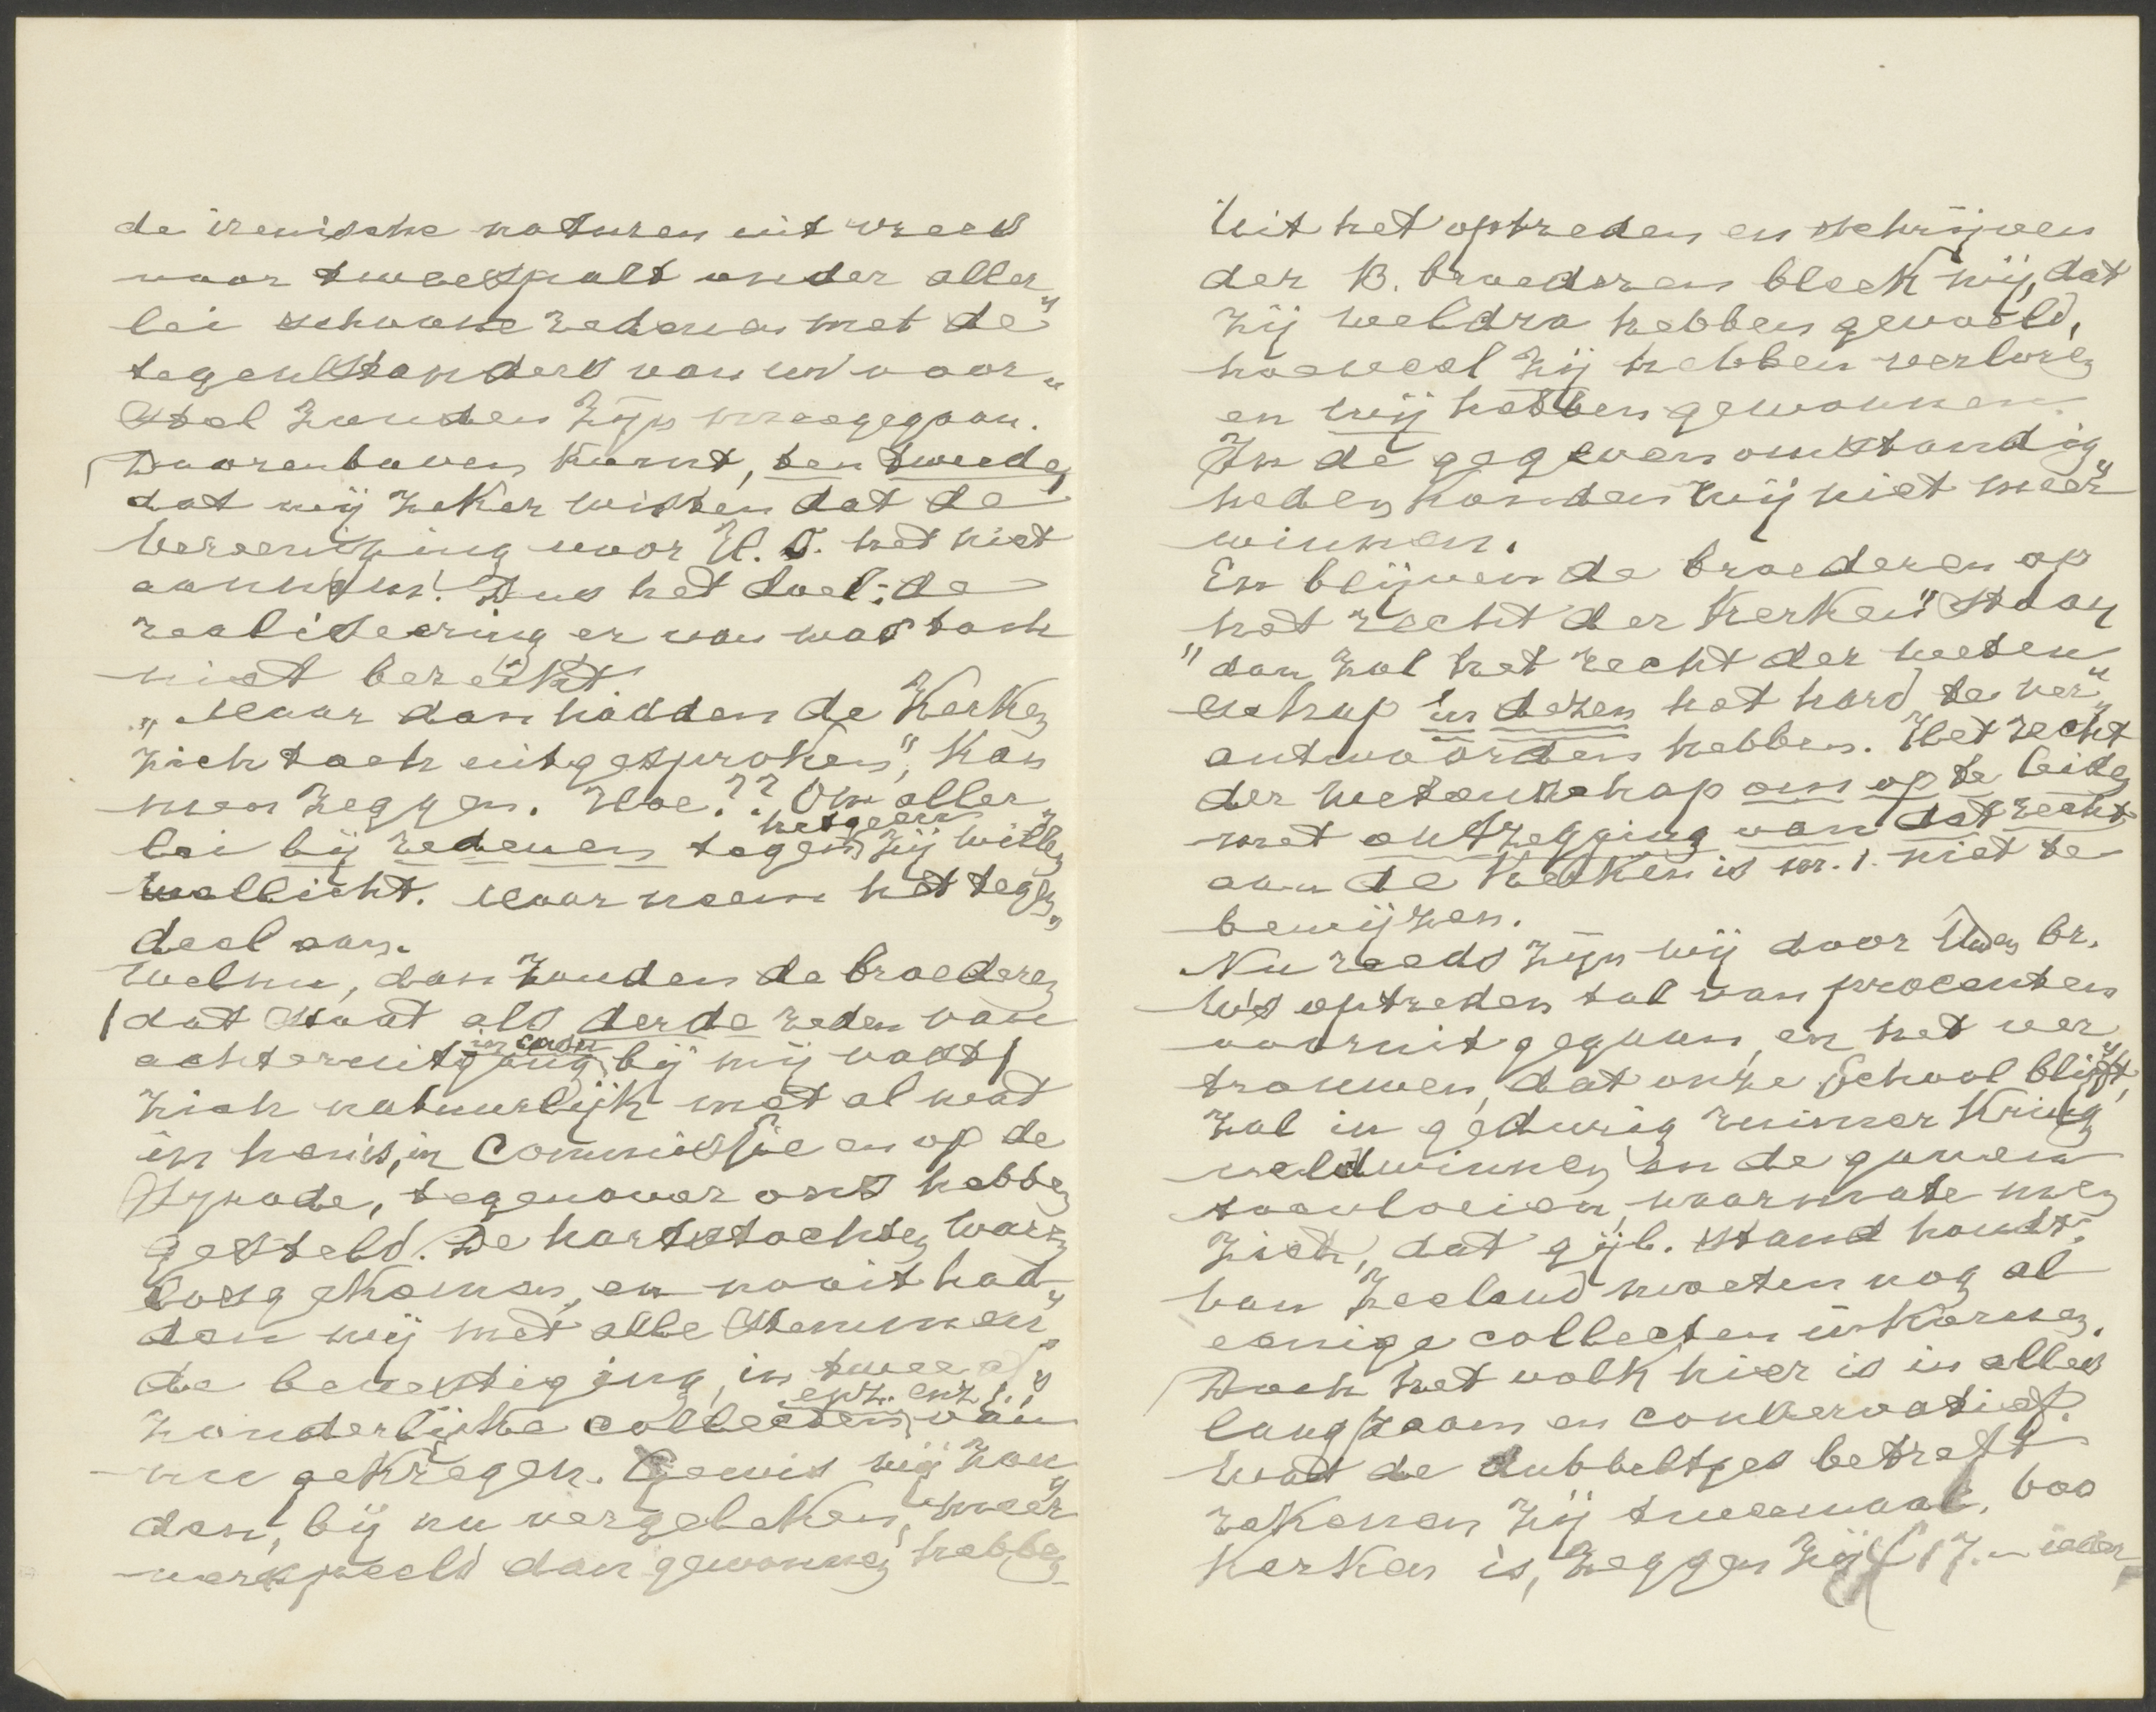 de irenische naturen uit vrees
voor tweespalt onder aller„
lei schoone redenen met de
tegenstanders van uw voor„
stel zouden zijn meegegaan.
Daarenboven komt, ten tweede,
dat wij zeker wisten dat de
Vereeniging voor H. O. het niet
aannam! Dus het doel: de
realiseering er van was toch
niet bereikt
„Maar dan hadden de Kerken
zich toch uitgesproken", kan
men zeggen. Hoe?? Om aller„
lei bij redenen tegen hetgeen zij willen
wellicht. Maar neem het tegen„
deel aan.
Welnu, dan zouden de broederen
(dat staat als derde reden van
achteruitgang in casu bij mij vast)
zich natuurlijk met al wat
in hen is, in Commissie en op de
Synode, tegenover ons hebben
gesteld. De hartstochten waren
losgekomen, en nooit had„
den wij met alle stemmen
de bevestiging, in twee af„
zonderlijke collecten, enz. enz. van
nu gekregen. Gewis wij zou„
den, bij nu vergeleken, meer
verspeeld dan gewonnen hebben
Uit het optreden en schrijven
der B. broederen bleek mij, dat
zij weldra hebben gevoeld,
hoeveel zij hebben verloren
en wij hebben gewonnen.
In de gegeven omstandig„
heden konden wij niet meer
winnen.
En blijven de broederen op
het recht der Kerken" staan
"dan zal het recht der weten„
schap in dezen het hard te ver„
antwoorden hebben. Het recht
der wetenschap om op te leiden
met ontzegging van dat recht
aan de Kerken is m. i. niet te
bewijzen.
Nu reeds zijn wij door Uwen br.
W's optreden tal van procenten
vooruit gegaan, en het ver„
trouwen, dat onze School blijft,
zal in gedurig ruimer Kring
veldwinnen en de gaven
toevloeien, naarmate men
ziet, dat gijl. stand houdt.
Van Zeeland moeten nog al
eenige collecten inkomen.
Doch het volk hier is in alles
langzaam en conservatief.
Wat de dubbeltjes betreft
rekenen zij tweemaal.
Kerken is, zeggen zij